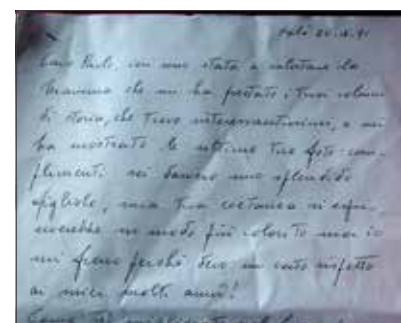 Caro Paolo, con uno stata a salutare la
che mi ha prestato i tuoi volumi
di storia, che trovo interessantissimi, e mi
ha mostrato le ultime tue foto: com-
plimenti sei davvero uno splendido
una tua coetanea si espri-
merebbe in modo più colorito ma io
mi freno perché devo un certo rispetto
ai miei molti anni!